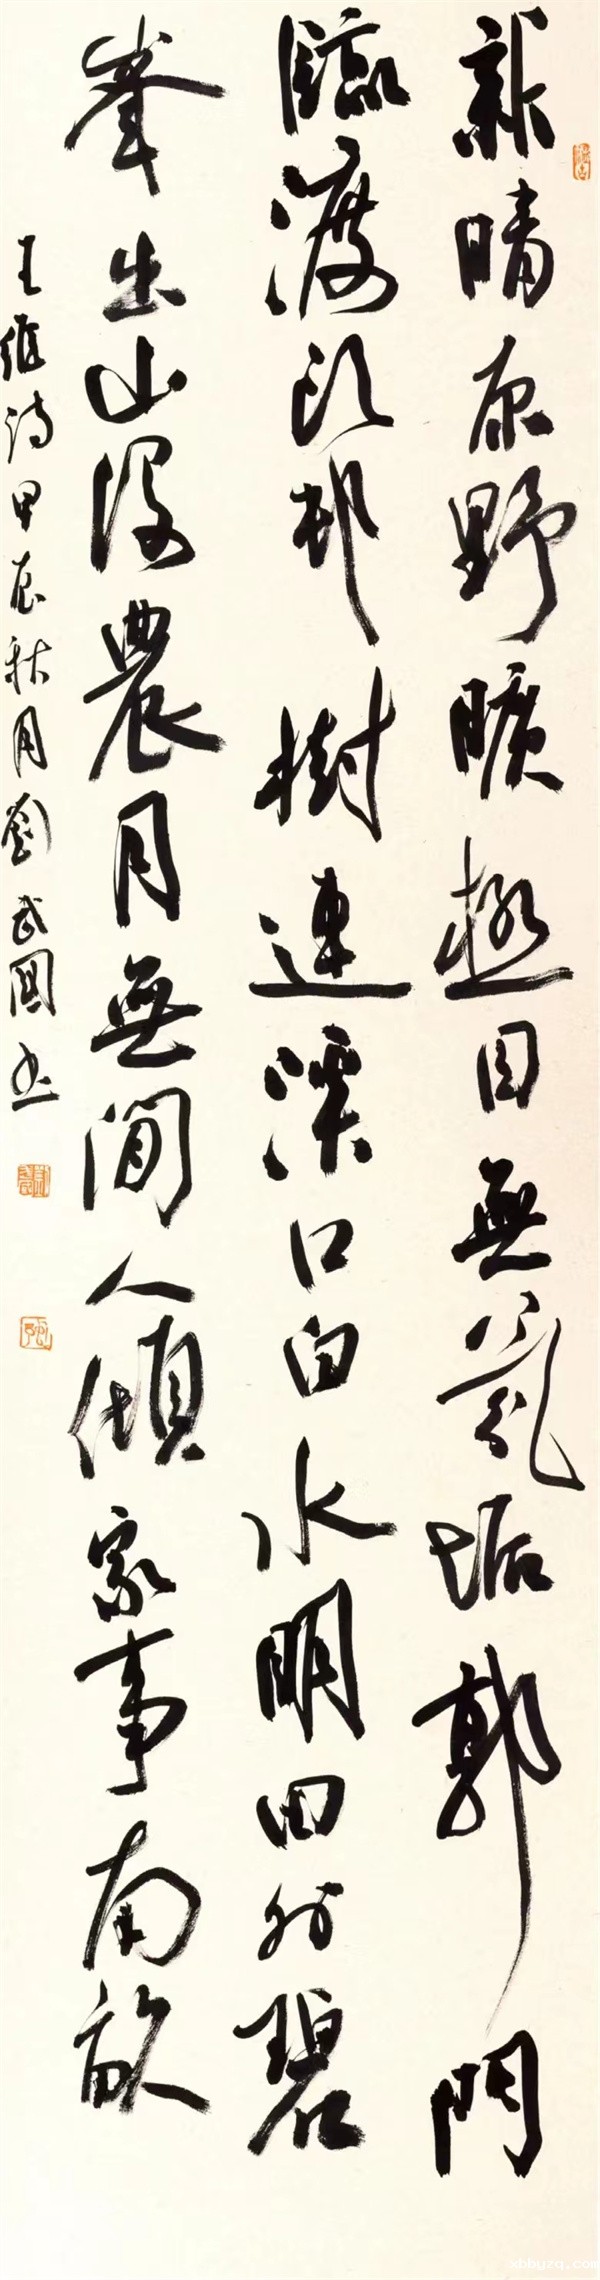 新晴原野曠極目無氛垢郭門
臨渡頭邨樹連溪口白水明田外碧
峯出山後農月無閒人傾家事南畝
王維詩甲辰秋月劉武國书
xbbyzq.com